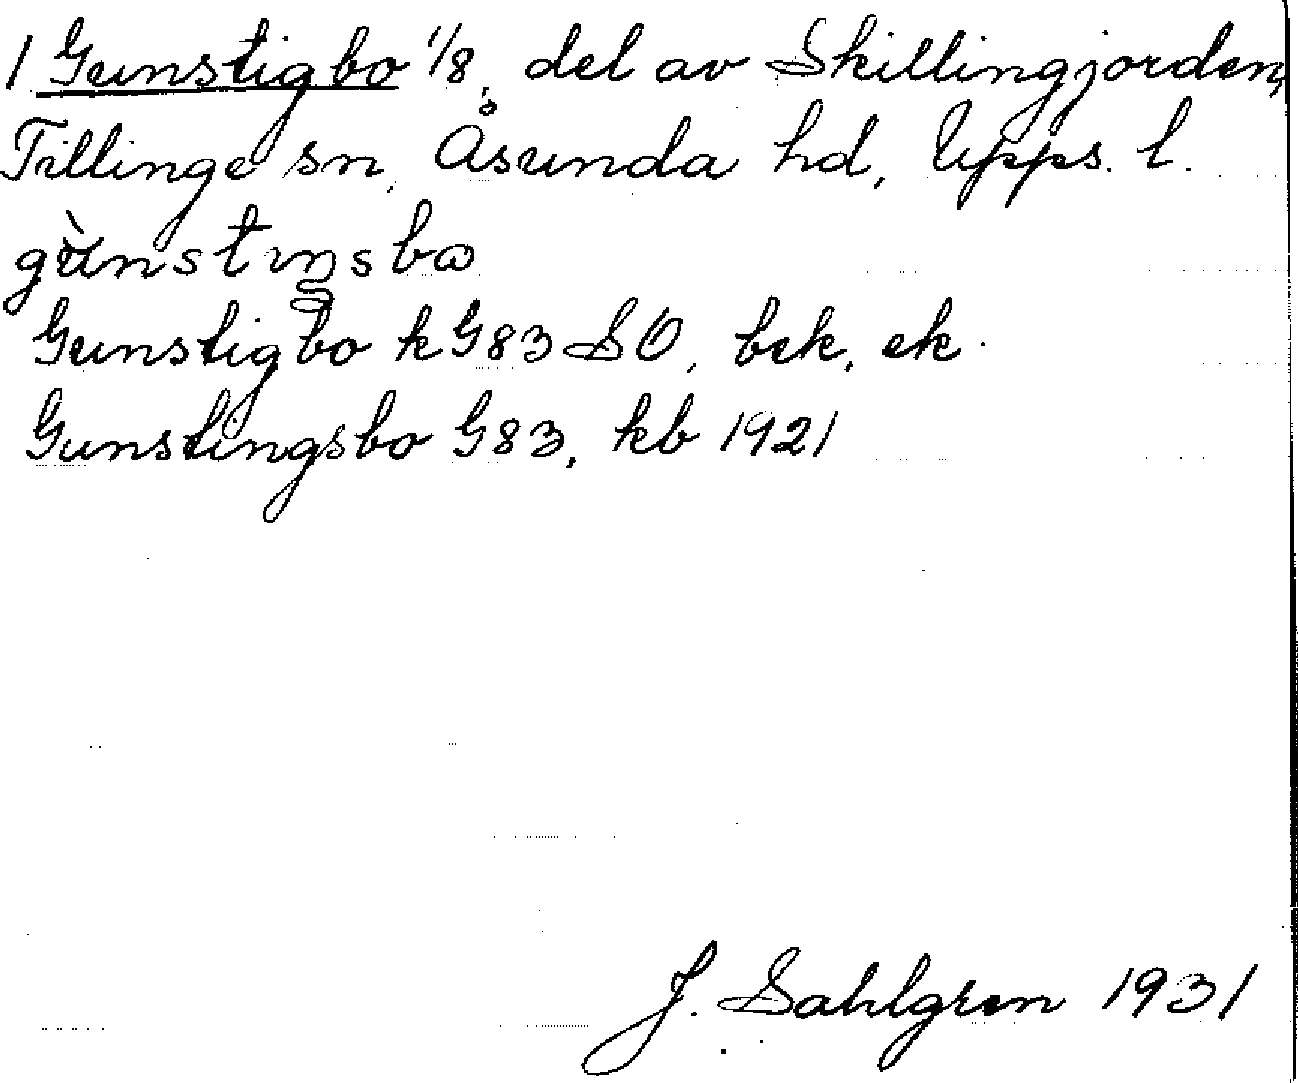 1 Gunstigbo 1/8, del av Skillingjorden,
Tillinge sn, Åsunda hd, Upps. l.
gùnstıŋsbω
Gunstigbo k G83 SO, bek, ek.
Gunstingsbo G83, kb 1921
J. Sahlgren 1931